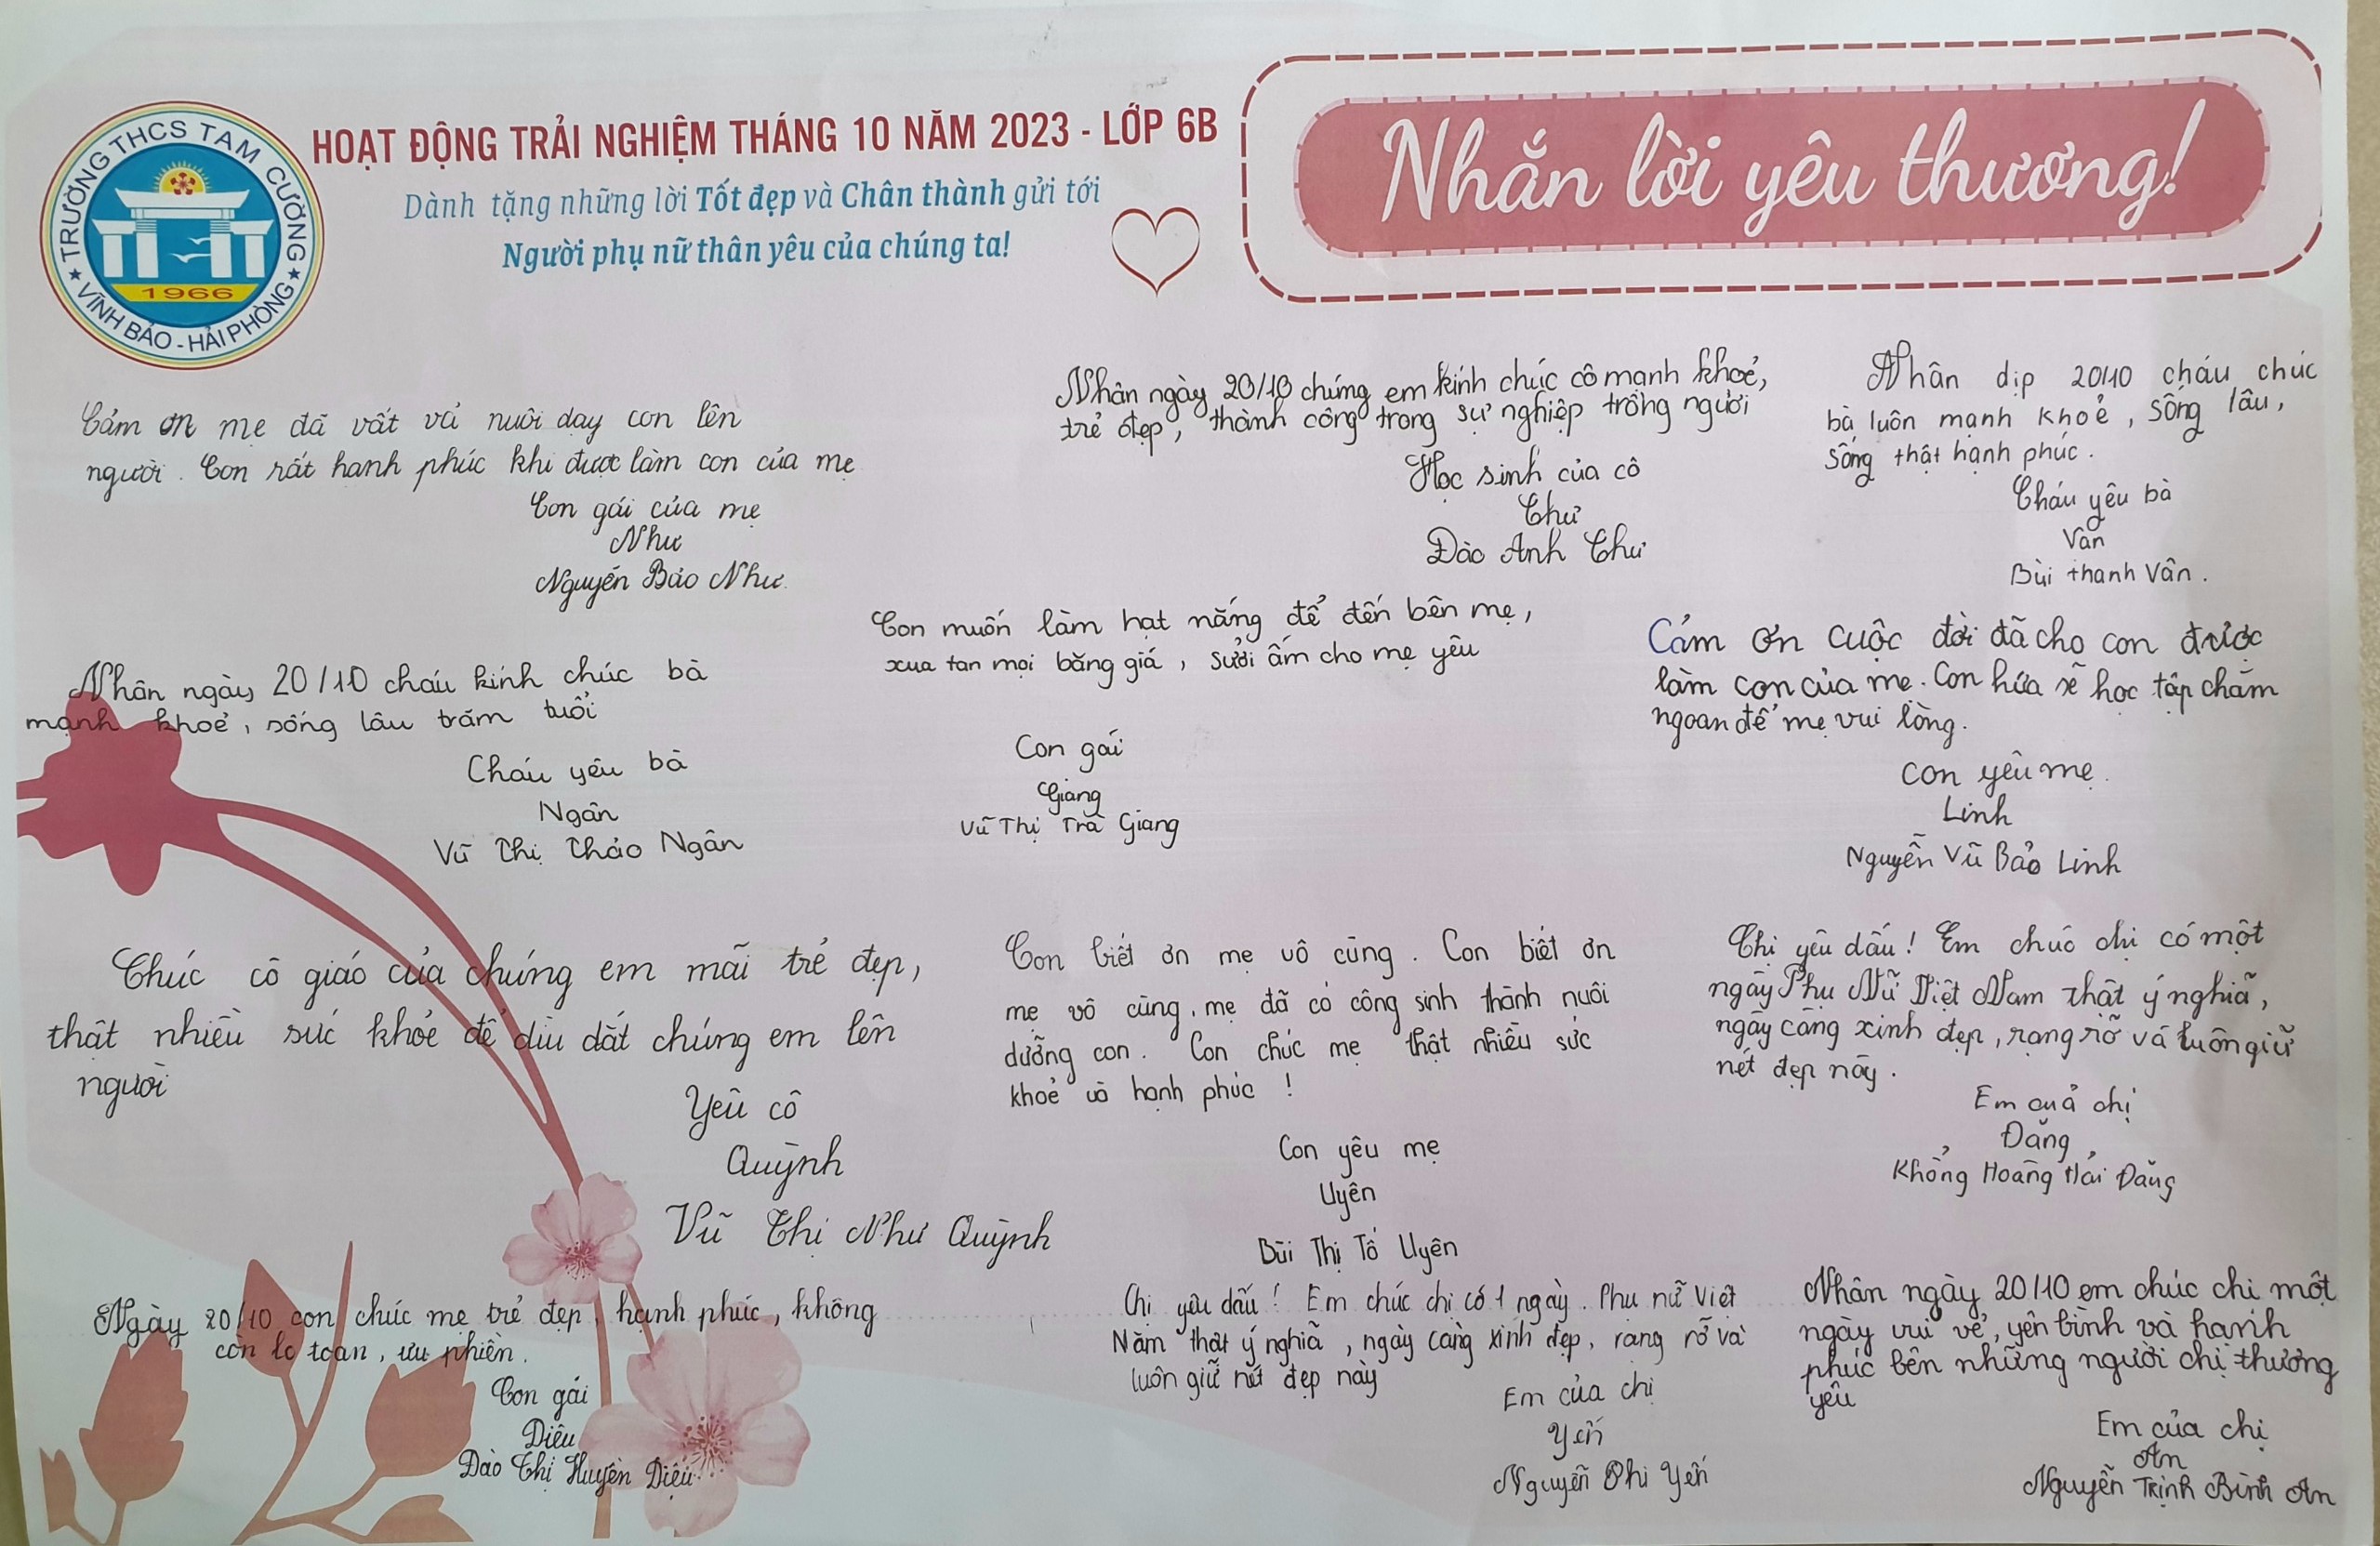 TRƯỜNG THCS TAM CƯỜNG
1966
VĨNH BẢO - HẢI PHÒNG
HOẠT ĐỘNG TRẢI NGHIỆM THÁNG 10 NĂM 2023 - LỚP 6B
Dành tặng những lời Tốt đẹp và Chân thành gửi tới
Người phụ nữ thân yêu của chúng ta!
Nhắn lời yêu thương!
Cảm ơn mẹ đã vất vả nuôi dạy con lên
người. Con rất hạnh phúc khi được làm con của mẹ
Con gái của mẹ
Như
Nguyễn Bảo Như.
Nhân ngày 20/10 chúng em kính chúc cô mạnh khoẻ,
trẻ đẹp, thành công trong sự nghiệp trồng người
Học sinh của cô
Thư
Đào Anh Thư
Nhân dịp 20/10 cháu chúc
bà luôn mạnh khoẻ, sống lâu,
sống thật hạnh phúc.
Cháu yêu bà
Vân
Bùi thanh Vân.
Nhân ngày 20/10 cháu kính chúc bà
mạnh khoẻ, sống lâu trăm tuổi
Cháu yêu bà
Ngân
Vũ Thị Thảo Ngân
Con muốn làm hạt nắng để đến bên mẹ,
xua tan mọi băng giá, sưởi ấm cho mẹ yêu
Con gái
Giang
Vũ Thị Trà Giang
Cảm ơn cuộc đời đã cho con được
làm con của mẹ. Con hứa sẽ học tập chăm
ngoan để mẹ vui lòng.
con yêu mẹ.
Linh
Nguyễn Vũ Bảo Linh
Chúc cô giáo của chúng em mãi trẻ đẹp,
thật nhiều sức khỏe để dìu dắt chúng em lên
người
Yêu cô
Quỳnh
Vũ Thị Như Quỳnh
Con biết ơn mẹ vô cùng. Con biết ơn
mẹ vô cùng, mẹ đã có công sinh thành nuôi
dưỡng con. Con chúc mẹ thật nhiều sức
khoẻ và hạnh phúc !
Con yêu mẹ
Uyên
Bùi Thị Tố Uyên
Chị yêu dấu! Em chúc chị có một
ngày Phụ Nữ Việt Nam thật ý nghĩa,
ngày càng xinh đẹp, rạng rỡ và luôn giữ
nét đẹp này.
Em của chị
Đăng
Khổng Hoàng Hải Đăng
Ngày 20/10 con chúc mẹ trẻ đẹp, hạnh phúc, không
còn lo toan, ưu phiền.
Con gái
Diệu
Đào Thị Huyền Diệu
Chị yêu dấu! Em chúc chị có 1 ngày. Phụ nữ Việt
Năm thật ý nghĩa, ngày càng xinh đẹp, rạng rỡ và
luôn giữ nét đẹp này
Em của chị
Yến
Nguyễn Phi Yến
Nhân ngày 20/10 em chúc chị một
ngày vui vẻ, yên bình và hạnh
phúc bên những người chị thương
yêu
Em của chị
An
Nguyễn Trịnh Bình An